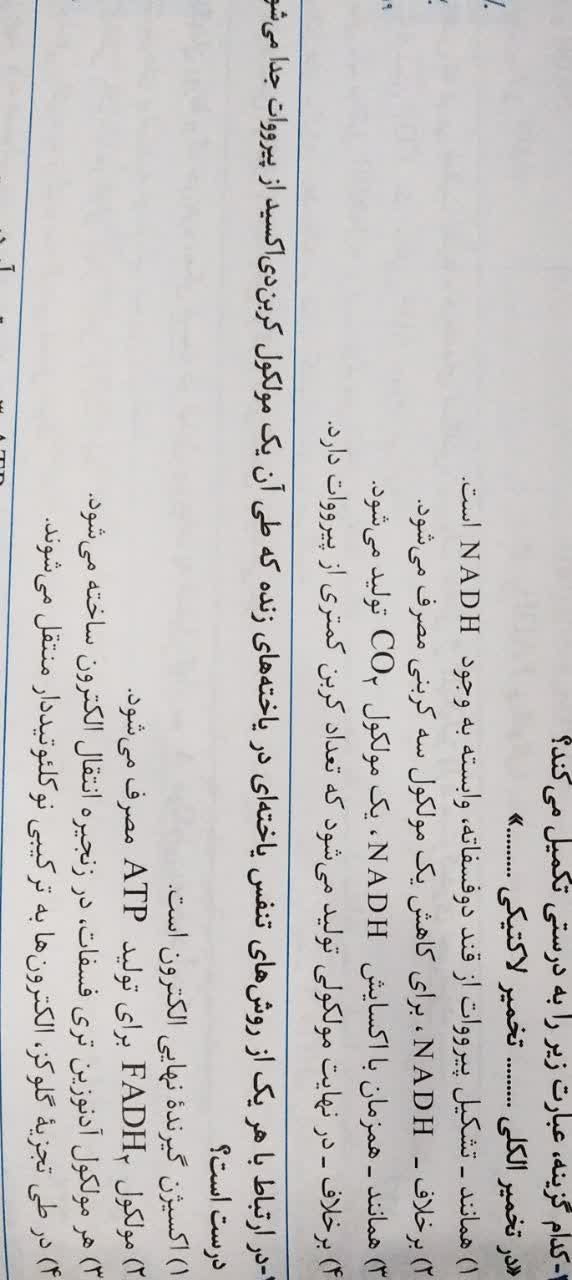 -کدام گزینه، عبارت زیر را به درستی تکمیل می‌کند؟
«در تخمیر الکلی .......... تخمیر لاکتیکی ..........»
۱) همانند - تشکیل پیرووات از قند دوفسفاته، وابسته به وجود NADH است.
۲) برخلاف - NADH، برای کاهش یک مولکول سه کربنی مصرف می‌شود.
۳) همانند - همزمان با اکسایش NADH، یک مولکول CO۲ تولید می‌شود.
۴) برخلاف - در نهایت مولکولی تولید می‌شود که تعداد کربن کمتری از پیرووات دارد.
-در ارتباط با هر یک از روش‌های تنفس یاخته‌ای در یاخته‌های زنده که طی آن یک مولکول کربن‌دی‌اکسید از پیرووات جدا می‌شو
درست است؟
۱) اکسیژن گیرندهٔ نهایی الکترون است.
۲) مولکول FADH۲ برای تولید ATP مصرف می‌شود.
۳) هر مولکول آدنوزین تری فسفات، در زنجیره انتقال الکترون ساخته می‌شود.
۴) در طی تجزیهٔ گلوکز، الکترون‌ها به ترکیبی نوکلئوتیددار منتقل می‌شوند.